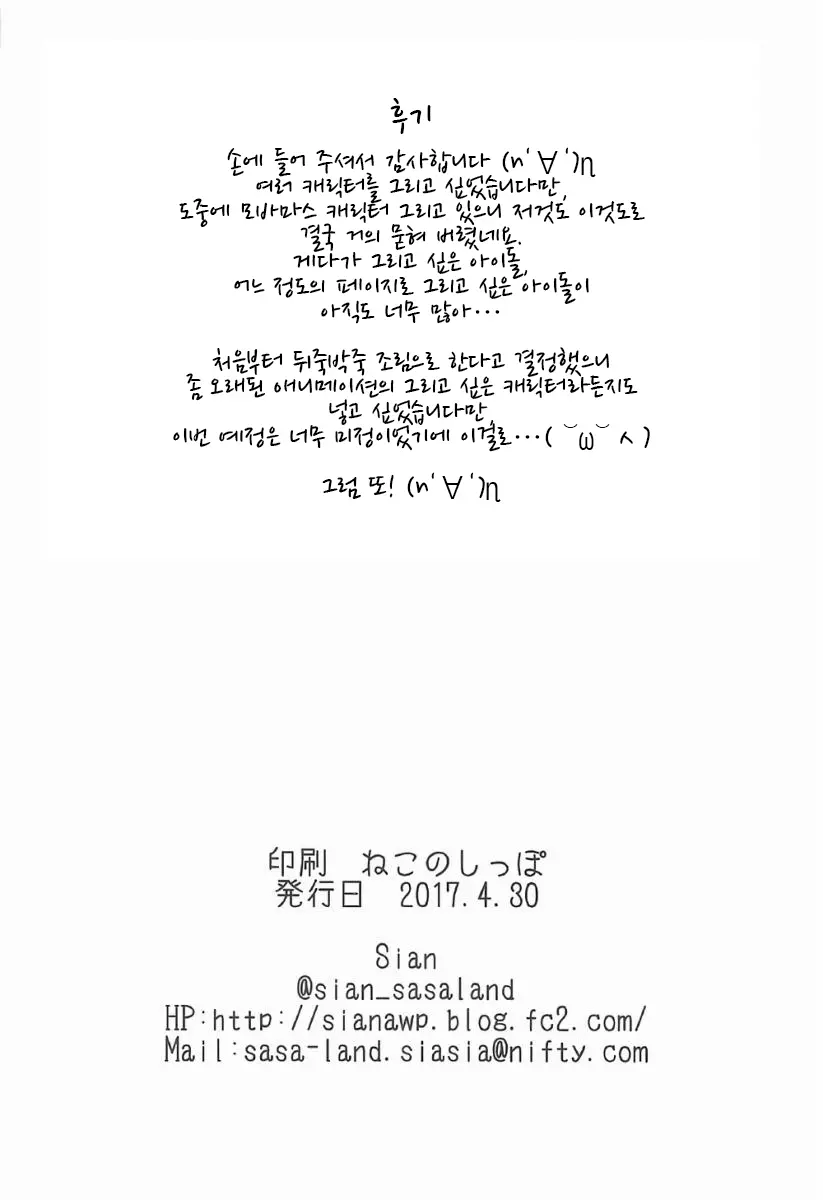 후기
손에 들어 주셔서 감사합니다 (n'∀')η
여러 캐릭터를 그리고 싶었습니다만,
도중에 모바마스 캐릭터 그리고 있으니 저것도 이것도로
결국 거의 묻혀 버렸네요.
게다가 그리고 싶은 아이돌,
어느 정도의 페이지로 그리고 싶은 아이돌이
아직도 너무 많아···
처음부터 뒤죽박죽 조림으로 한다고 결정했으니
좀 오래된 애니메이션의 그리고 싶은 캐릭터라든지도
넣고 싶었습니다만,
이번 예정은 너무 미정이었기에 이걸로···( ˘ω˘ ㅅ)
그럼 또! (n'∀')η
印刷 ねこのしっぽ
発行日 2017.4.30
Sian
@sian_sasaland
HP:http://sianawp.blog.fc2.com/
Mail:sasa-land.siasia@nifty.com